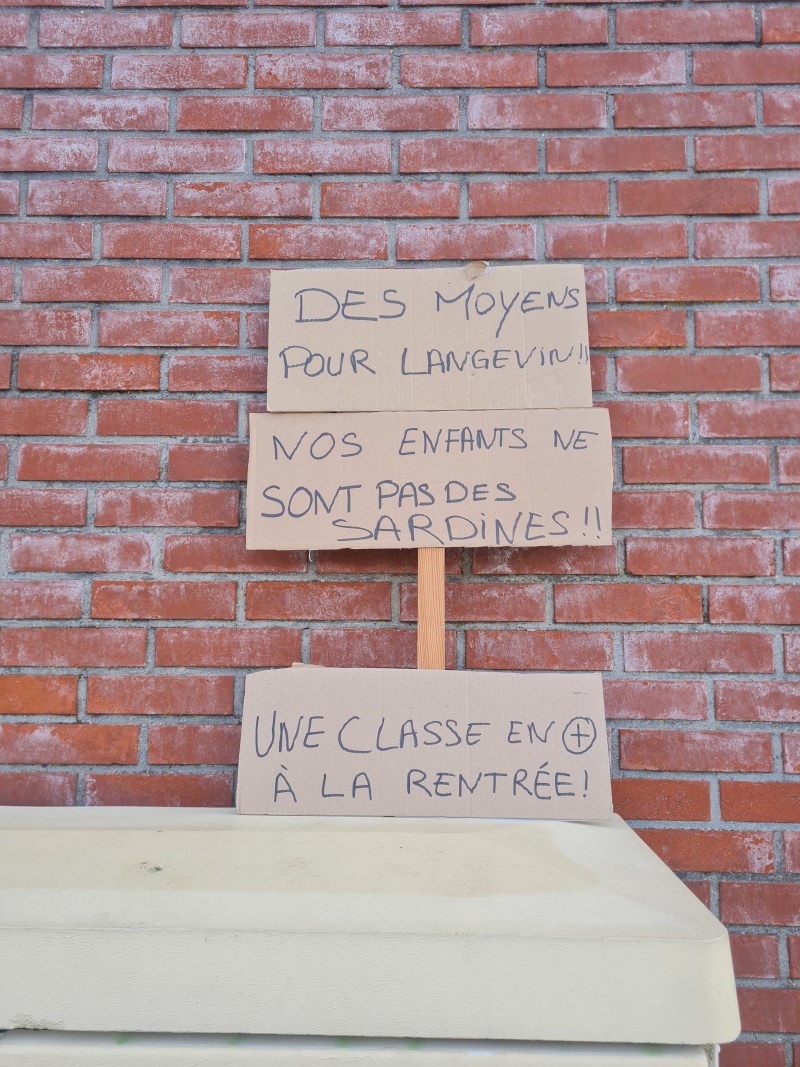 DES MOYENS
POUR LANGEVIN!!
NOS ENFANTS NE
SONT PAS DES
SARDINES!!
UNE CLASSE EN ⊕
À LA RENTRÉE!